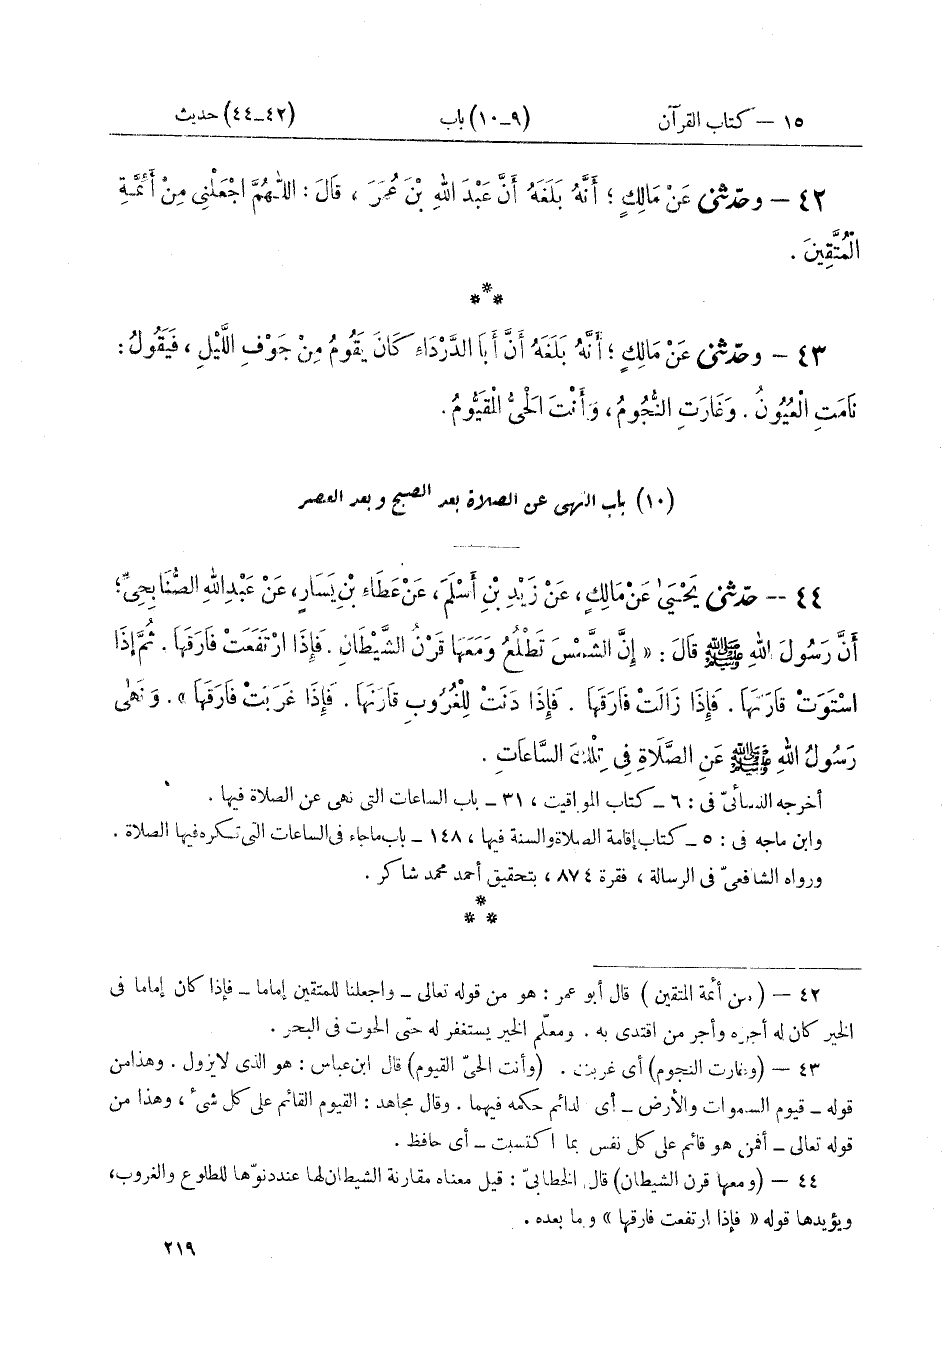 ١٥ – كتاب القرآن (٩–١٠) باب (٤٢–٤٤) حديث
٤٢ – وحدّثنى عَنْ مَالِكٍ ؛ أَنَّهُ بَلَغَهُ أَنَّ عَبْدَ اللهِ بْنَ عُمَرَ ، قَالَ : اللّٰهُمَّ اجْعَلْنِى مِنْ أَئِمَّةِ
الْمُتَّقِينَ .
***
٤٣ – وحدّثنى عَنْ مَالِكٍ ؛ أَنَّهُ بَلَغَهُ أَنَّ أَبَا الدَّرْدَاءِ كَانَ يَقُومُ مِنْ جَوْفِ اللَّيْلِ ، فَيَقُولُ :
نَامَتِ الْعُيُونُ . وَغَارَتِ النُّجُومُ ، وَأَنْتَ الْحَىُّ الْقَيُّومُ .
(١٠) باب النهى عن الصلاة بعد الصبح وبعد العصر
٤٤ – حدّثنى يَحْيَىٰ عَنْ مَالِكٍ ، عَنْ زَيْدِ بْنِ أَسْلَمَ ، عَنْ عَطَاءِ بْنِ يَسَارٍ ، عَنْ عَبْدِ اللهِ الصُّنَابِحِىِّ ؛
أَنَّ رَسُولَ اللهِ ﷺ قَالَ : « إِنَّ الشَّمْسَ تَطْلُعُ وَمَعَهَا قَرْنُ الشَّيْطَانِ . فَإِذَا ارْتَفَعَتْ فَارَقَهَا . ثُمَّ إِذَا
اسْتَوَتْ قَارَنَهَا . فَإِذَا زَالَتْ فَارَقَهَا . فَإِذَا دَنَتْ لِلْغُرُوبِ قَارَنَهَا . فَإِذَا غَرَبَتْ فَارَقَهَا » . وَنَهَىٰ
رَسُولُ اللهِ ﷺ عَنِ الصَّلَاةِ فِى تِلْكَ السَّاعَاتِ .
أخرجه النسائىّ فى : ٦ – كتاب المواقيت ، ٣١ – باب الساعات التى نهى عن الصلاة فيها .
وابن ماجه فى : ٥ – كتاب إقامة الصلاة والسنة فيها ، ١٤٨ – باب ماجاء فى الساعات التى تكره فيها الصلاة .
ورواه الشافعىّ فى الرسالة ، فقرة ٨٧٤ ، بتحقيق أحمد محمد شاكر .
***
٤٢ – (من أئمة المتقين) قال أبو عمر : هو من قوله تعالى – واجعلنا للمتقين إماما – فإذا كان إماما فى
الخير كان له أجره وأجر من اقتدى به . ومعلّم الخير يستغفر له حتى الحوت فى البحر .
٤٣ – (وغارت النجوم) أى غربت . (وأنت الحىّ القيوم) قال ابن عباس : هو الذى لايزول . وهذا من
قوله – قيوم السموات والأرض – أى الدائم حكمه فيهما . وقال مجاهد : القيوم القائم على كل شىء ، وهذا من
قوله تعالى – أفمن هو قائم على كل نفس بما اكتسبت – أى حافظ .
٤٤ – (ومعها قرن الشيطان) قال الخطابىّ : قيل معناه مقارنة الشيطان لها عند دنوّها للطلوع والغروب ،
ويؤيدها قوله « فإذا ارتفعت فارقها » وما بعده .
٢١٩